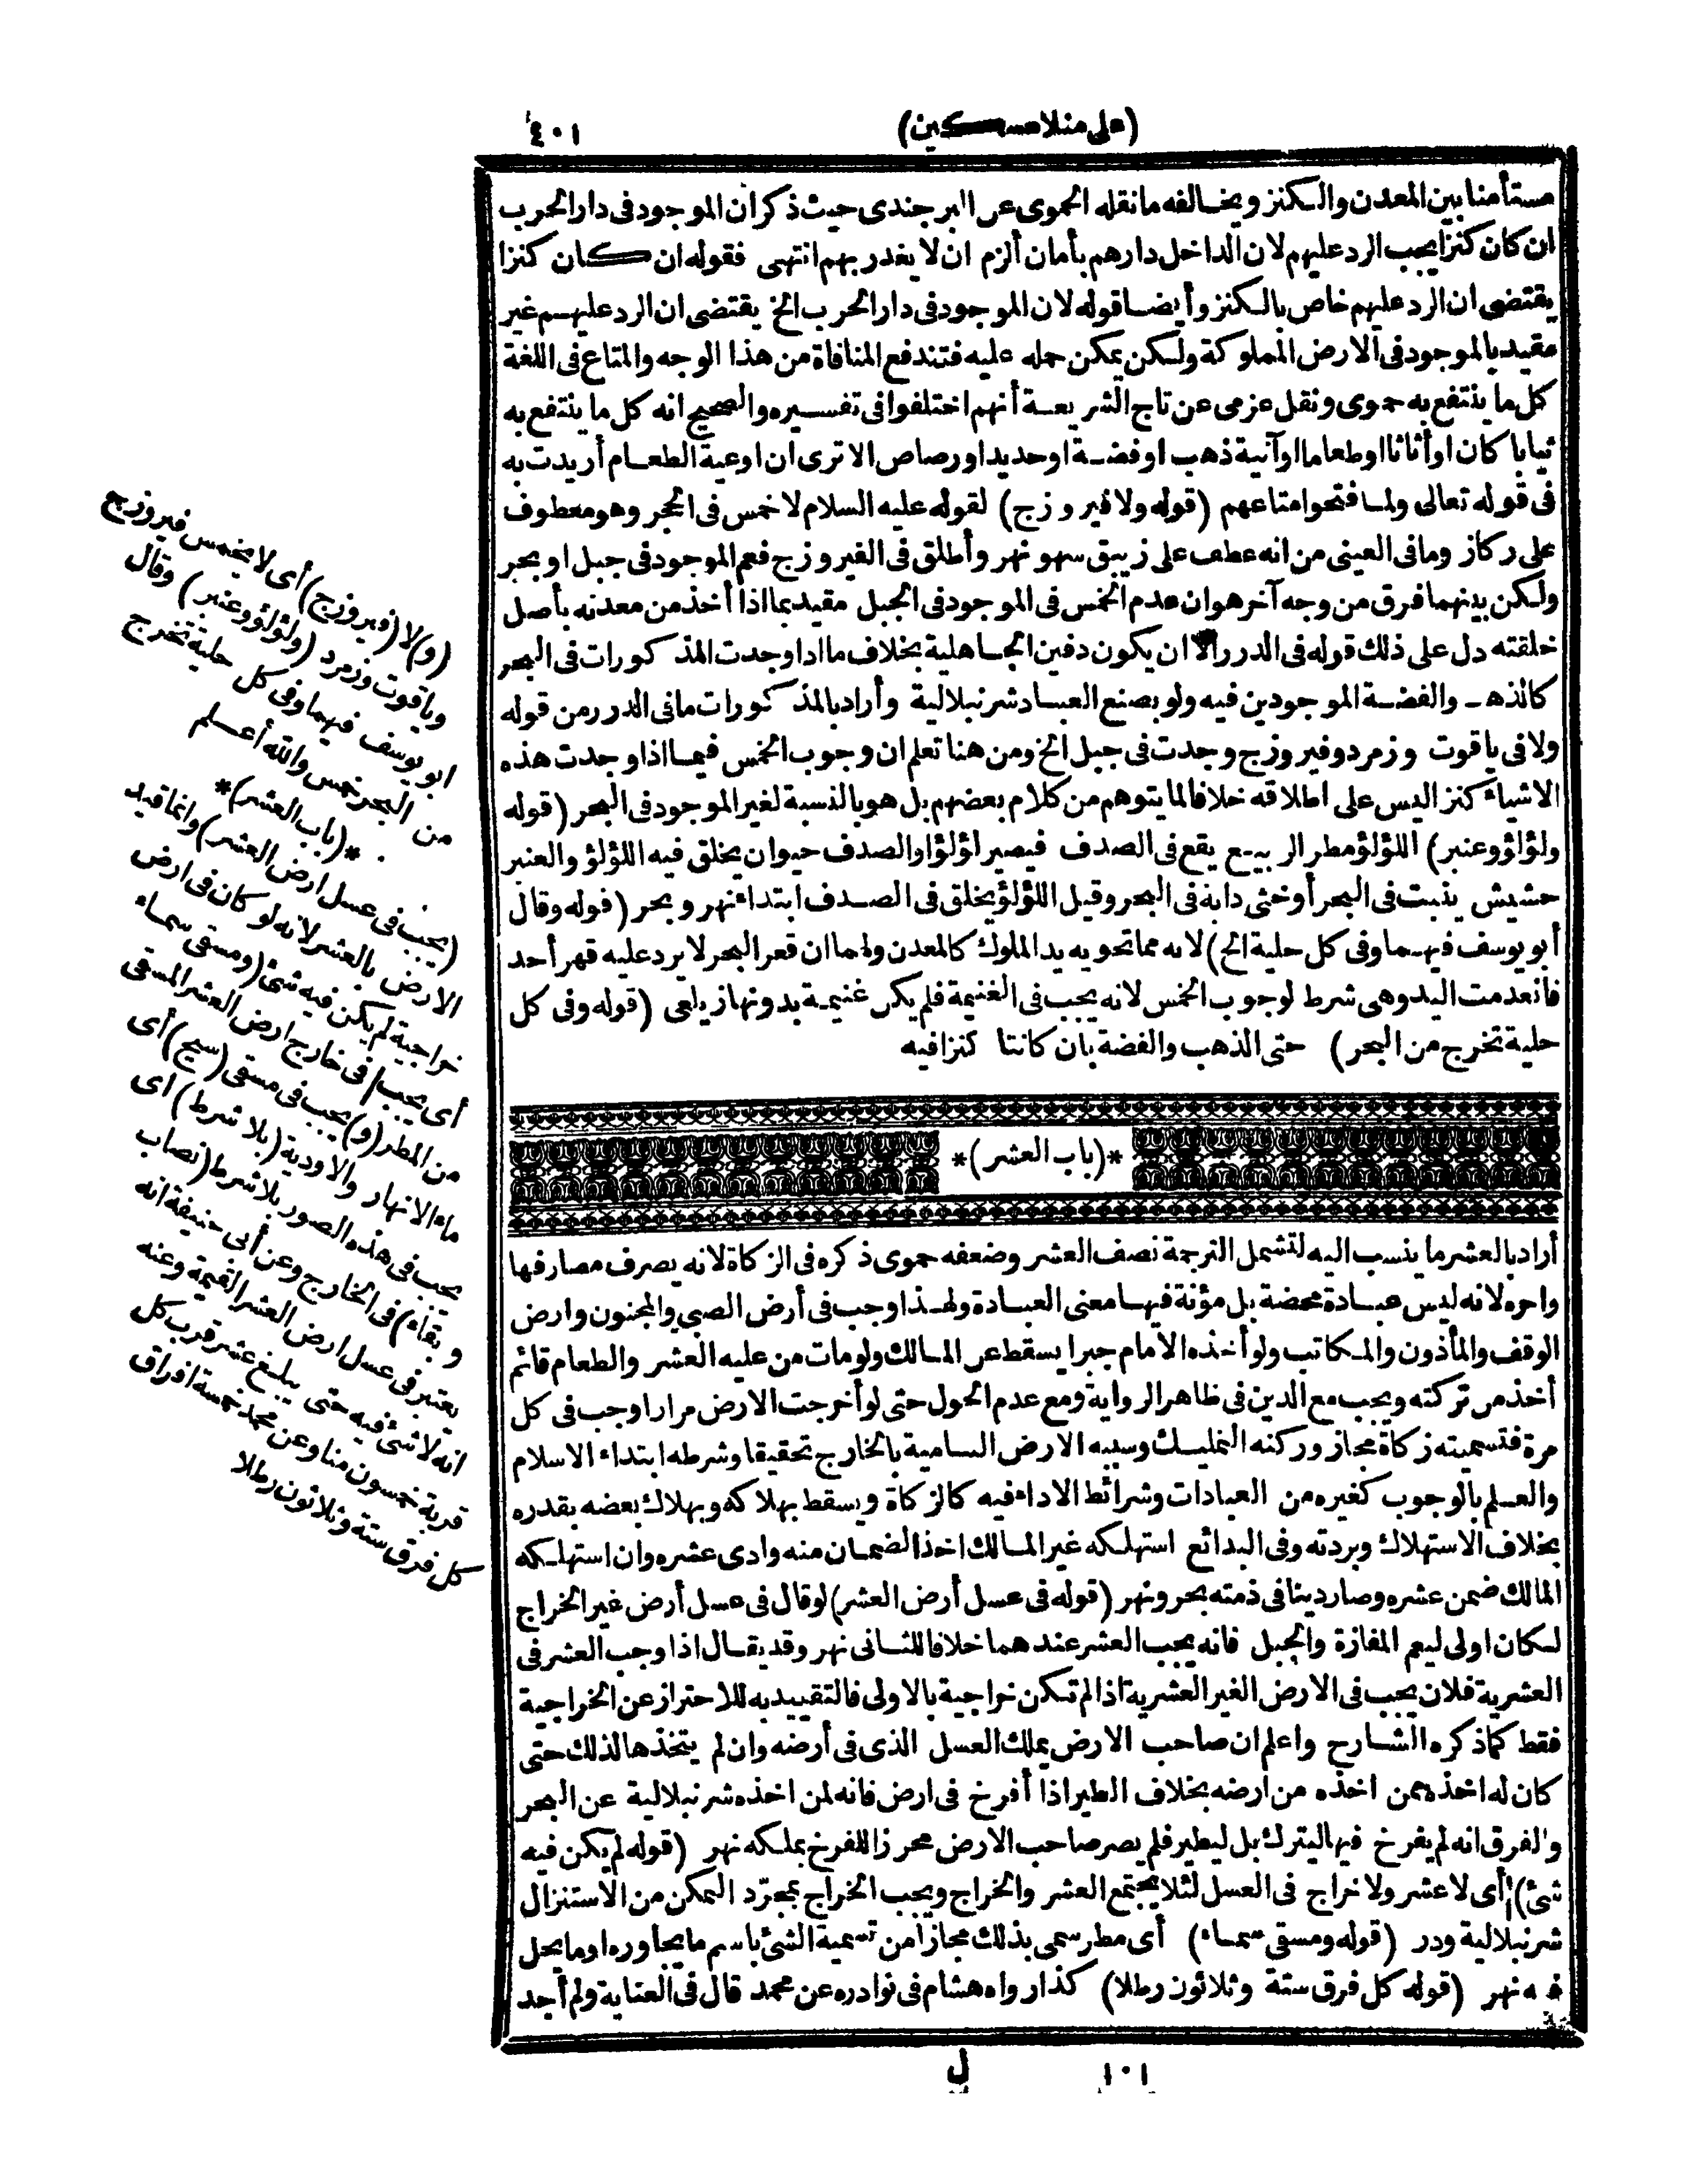 (على منلا مسكين)
٤٠١
مستأمنا بين المعدن والكنز ويخالفه ما نقله الحموى عن البرجندى حيث ذكر ان الموجود فى دار الحرب
ان كان كنزا يجب الرد عليهم لان الداخل دارهم بأمان ألزم ان لا يغدر بهم انتهى فقوله ان كان كنزا
يقتضى ان الرد عليهم خاص بالكنز وأيضا قوله لان الموجود فى دار الحرب الخ يقتضى ان الرد عليهم غير
مقيد بالموجود فى الارض المملوكة ولكن يمكن حمله عليه فتندفع المنافاة من هذا الوجه والمتاع فى اللغة
كل ما ينتفع به حموى ونقل عزمى عن تاج الشريعة أنهم اختلفوا فى تفسيره والصحيح انه كل ما ينتفع به
ثيابا كان او أثاثا او طعاما او آنية ذهب او فضة او حديد او رصاص الا ترى ان اوعية الطعام أريدت به
فى قوله تعالى ولما فتحوا متاعهم (قوله ولا فيروزج) لقوله عليه السلام لا خمس فى الحجر وهو معطوف
على ركاز وما فى العينى من انه عطف على زيبق سهو نهر وأطلق فى الفيروزج فعم الموجود فى جبل او بحر
ولكن بينهما فرق من وجه آخر هو ان عدم الخمس فى الموجود فى الجبل مقيد بما اذا أخذ من معدنه بأصل
خلقته دل على ذلك قوله فى الدرر الا ان يكون دفين الجاهلية بخلاف ما اذا وجدت المذكورات فى البحر
كالذهب والفضة الموجودين فيه ولو بصنع العباد شرنبلالية وأراد بالمذكورات ما فى الدرر من قوله
ولا فى ياقوت وزمرد وفيروزج وجدت فى جبل الخ ومن هنا تعلم ان وجوب الخمس فيما اذا وجدت هذه
الاشياء كنزا ليس على اطلاقه خلافا لما يتوهم من كلام بعضهم بل هو بالنسبة لغير الموجود فى البحر (قوله
ولؤلؤ وعنبر) اللؤلؤ مطر الربيع يقع فى الصدف فيصير لؤلؤا والصدف حيوان يخلق فيه اللؤلؤ والعنبر
حشيش ينبت فى البحر أو خثى دابة فى البحر وقيل اللؤلؤ يخلق فى الصدف ابتداء نهر وبحر (قوله وقال
أبو يوسف فيهما وفى كل حلية الخ) لانه مما تحويه يد الملوك كالمعدن ولهما ان قعر البحر لا يرد عليه قهر أحد
فانعدمت اليد وهى شرط لوجوب الخمس لانه يجب فى الغنيمة فلم يكن غنيمة بدونها زيلعى (قوله وفى كل
حلية تخرج من البحر) حتى الذهب والفضة بان كانتا كنزا فيه
*(باب العشر)*
أراد بالعشر ما ينسب اليه لتشمل الترجمة نصف العشر وضعفه حموى ذكره فى الزكاة لانه يصرف مصارفها
واخره لانه ليس عبادة محضة بل مؤنة فيها معنى العبادة ولهذا وجب فى أرض الصبى والمجنون وارض
الوقف والمأذون والمكاتب ولو أخذه الامام جبرا يسقط عن المالك ولو مات من عليه العشر والطعام قائم
أخذ من تركته ويجب مع الدين فى ظاهر الرواية ومع عدم الحول حتى لو أخرجت الارض مرارا وجب فى كل
مرة فتسميته زكاة مجاز وركنه التمليك وسببه الارض النامية بالخارج تحقيقا وشرطه ابتداء الاسلام
والعلم بالوجوب كغيره من العبادات وشرائط الاداء فيه كالزكاة ويسقط بهلاكه وبهلاك بعضه بقدره
بخلاف الاستهلاك وبردته وفى البدائع استهلكه غير المالك اخذ الضمان منه وادى عشره وان استهلكه
المالك ضمن عشره وصار دينا فى ذمته بحر ونهر (قوله فى عسل أرض العشر) لو قال فى عسل أرض غير الخراج
لكان اولى ليعم المفازة والجبل فانه يجب العشر عندهما خلافا للثانى نهر وقد يقال اذا وجب العشر فى
العشرية فلان يجب فى الارض الغير العشرية اذا لم تكن خراجية بالاولى فالتقييد به للاحتراز عن الخراجية
فقط كما ذكره الشارح واعلم ان صاحب الارض يملك العسل الذى فى أرضه وان لم يتخذها لذلك حتى
كان له اخذه ممن اخذه من ارضه بخلاف الطير اذا أفرخ فى ارض فانه لمن اخذه شرنبلالية عن البحر
والفرق انه لم يفرخ فيها ليترك بل ليطير فلم يصر صاحب الارض محرزا للفرخ بملكه نهر (قوله لم يكن فيه
شئ) أى لا عشر ولا خراج فى العسل لئلا يجتمع العشر والخراج ويجب الخراج بمجرد التمكن من الاستنزال
شرنبلالية ودر (قوله ومسقى سماء) أى مطر سمى بذلك مجازا من تسمية الشئ باسم ما يجاوره او ما يحل
فيه نهر (قوله كل فرق ستة وثلاثون رطلا) كذا رواه هشام فى نوادره عن محمد قال فى العناية ولم أجد
(و) لا (فيروزج) أى لا يخمس فيروزج
وياقوت وزمرد (ولؤلؤ وعنبر) وقال
ابو يوسف فيهما وفى كل حلية تخرج
من البحر خمس والله أعلم
*(باب العشر)*
(يجب فى عسل ارض العشر) وانما قيد
الارض بالعشر لانه لو كان فى ارض
خراجية لم يكن فيه شئ (ومسقى سماء
أى يجب فى خارج ارض العشر المسقى
من المطر (و) يجب فى مسقى (سيح) أى
ماء الانهار والاودية (بلا شرط) اى
يجب فى هذه الصور بلا شرط (نصاب
وبقاء) فى الخارج وعن أبى حنيفة انه
يعتبر فى عسل ارض العشر القيمة وعنه
انه لا شئ فيه حتى يبلغ عشر قرب كل
قربة خمسون منا وعن محمد خمسة افراق
كل فرق ستة وثلاثون رطلا
١٠١
ل